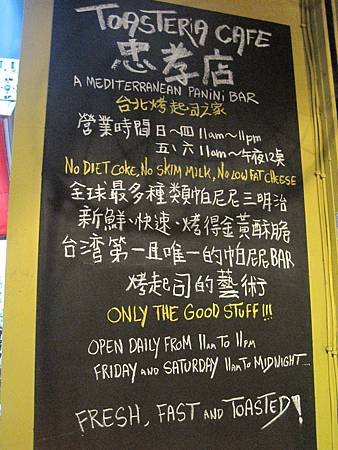 TOASTERIA CAFE
忠孝店
A MEDITERRANEAN PANINI BAR
台北烤起司之家
營業時間日~四 11am~11pm
五、六 11am~午夜12奌
NO DIET COKE, NO SKIM MILK, NO LOW FAT CHEESE
全球最多種類帕尼尼三明治
新鮮、快速、烤得金黃酥脆
台湾第一且唯一的帕尼尼BAR
烤起司的藝術
ONLY THE GOOD STUFF!!!
OPEN DAILY FROM 11am TO 11pm
FRIDAY AND SATURDAY 11am TO MIDNIGHT...
FRESH, FAST AND TOASTED!